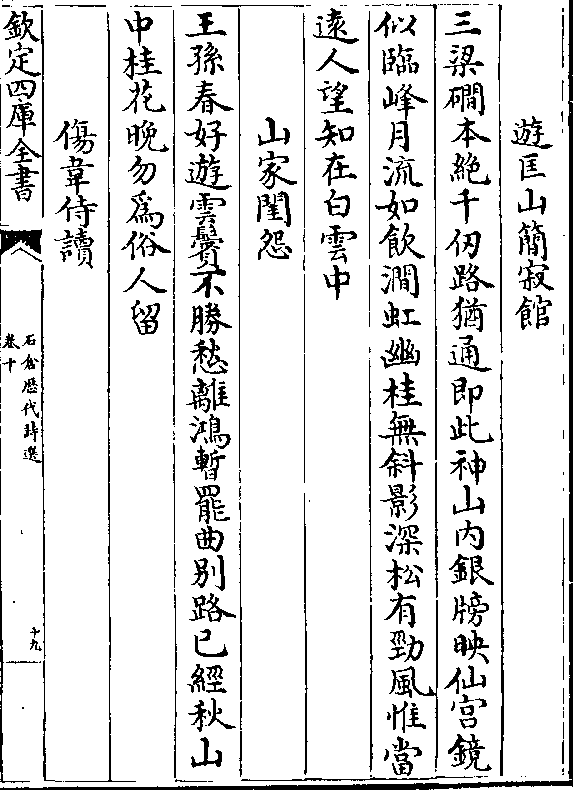 遊匡山簡寂館
三梁磵本絶千仭路猶通即此神山内銀牓映仙宫鏡
似臨峰月流如飲澗虹幽桂無斜影深松有勁風惟當
逺人望知在白雲中
山家閨怨
王孫春好遊雲鬢不勝愁離鴻暫罷曲别路已經秋山
中桂花晚勿爲俗人留
傷韋侍讀
欽定四庫全書
石倉歴代詩選
卷十
十九